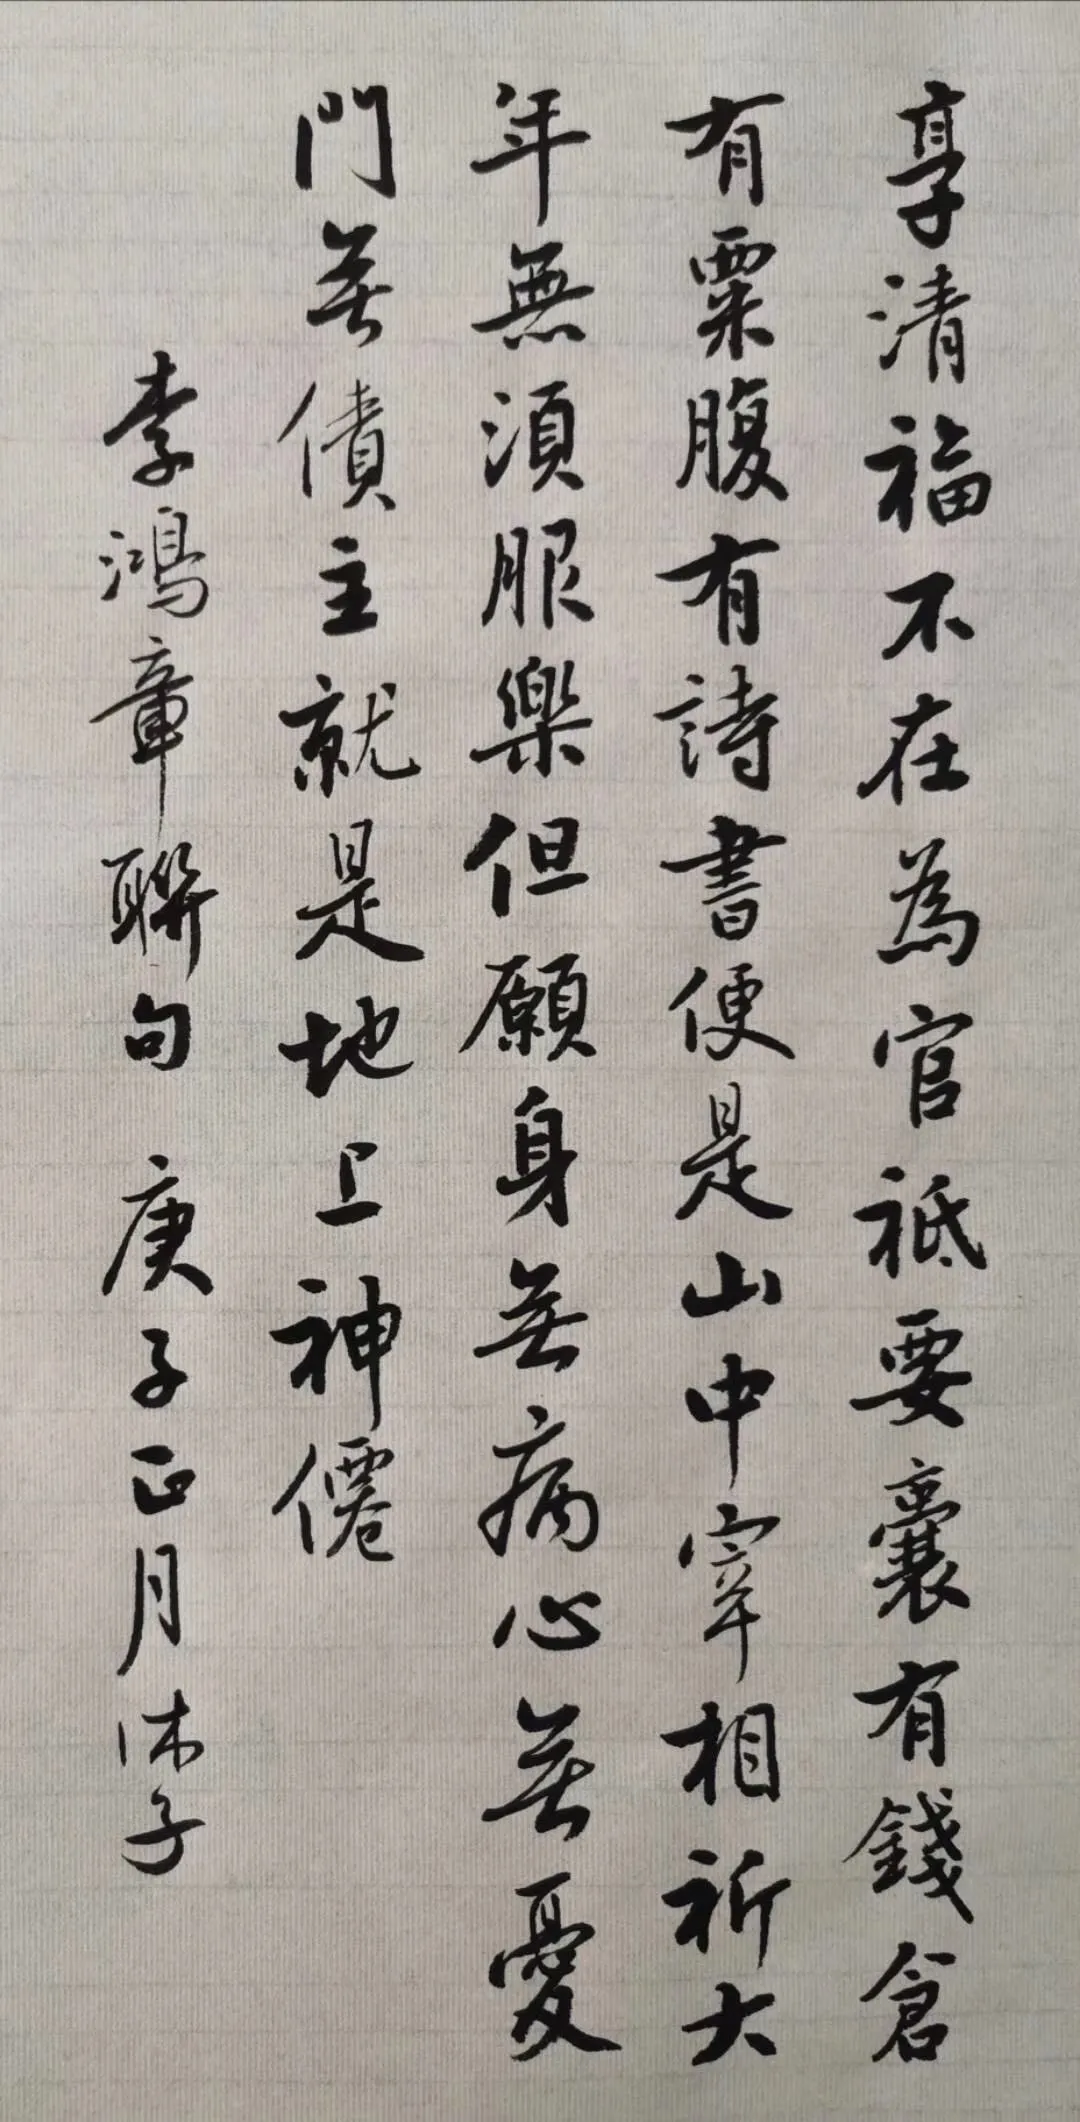 享清福不在為官祗要囊有錢倉
有粟腹有詩書便是山中宰相祈大
年無須服樂但願身無病心無憂
門無債主就是地上神僊
李鴻章聯句 庚子正月沐子